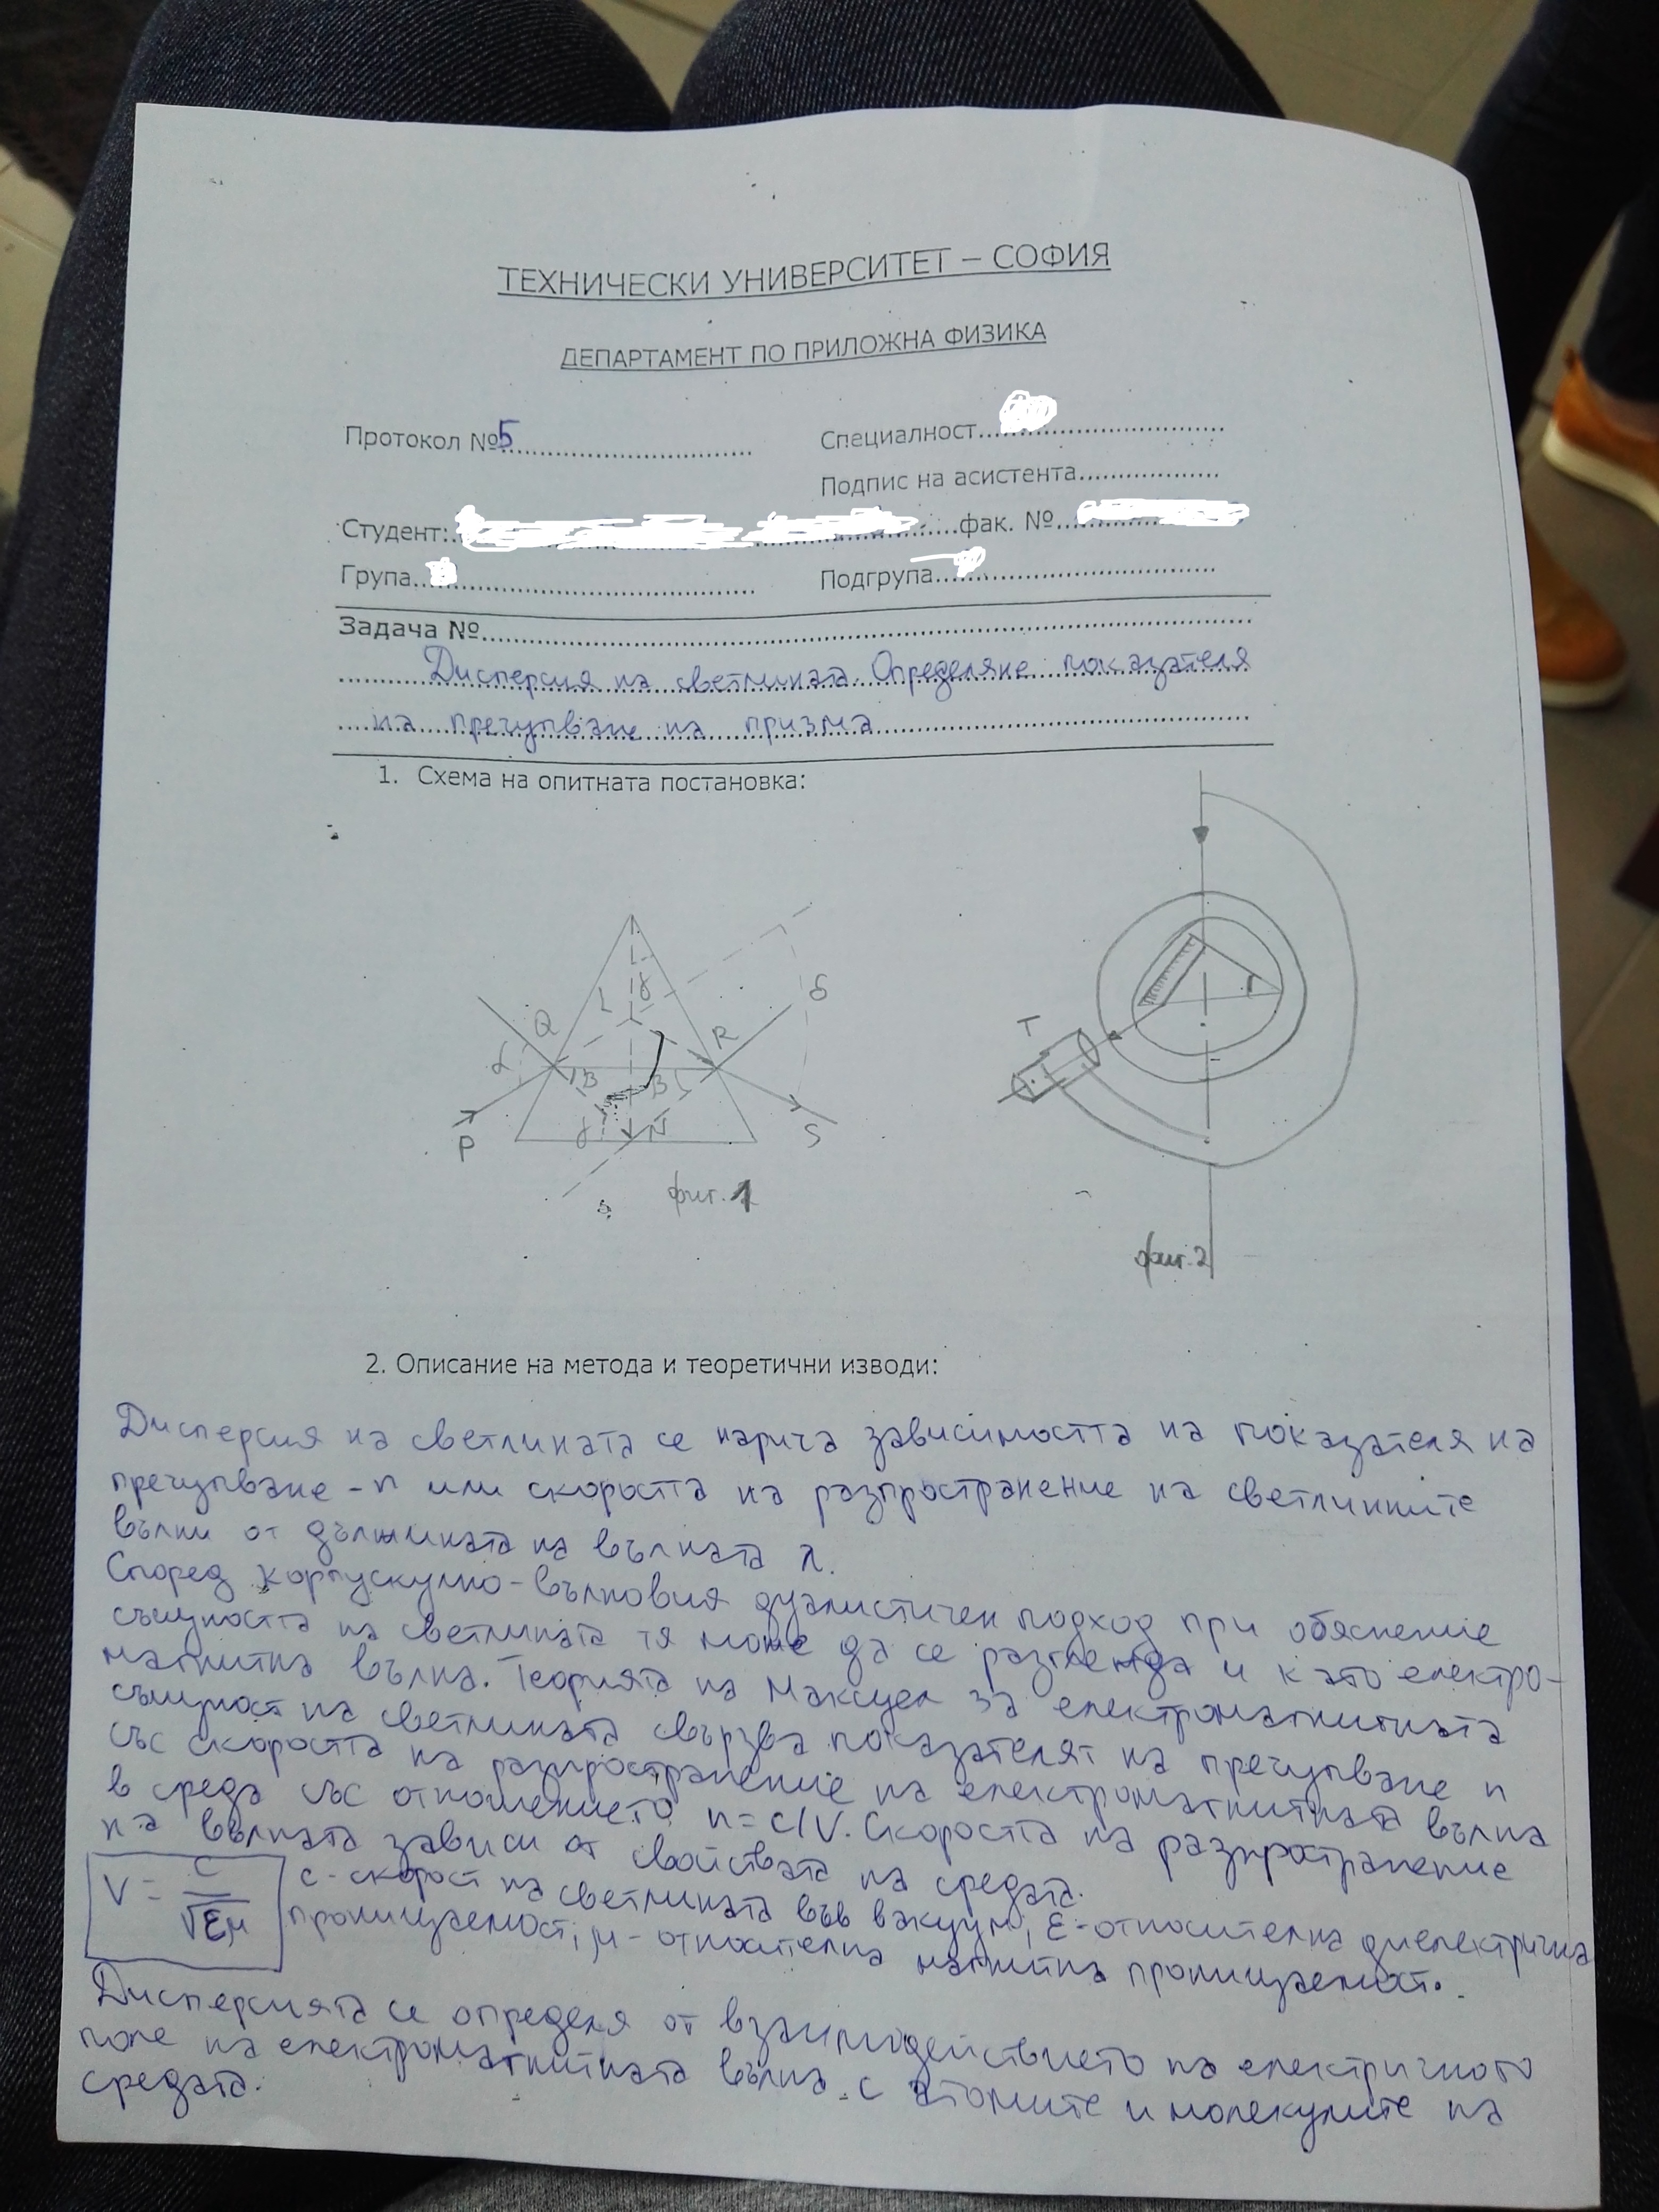 ТЕХНИЧЕСКИ УНИВЕРСИТЕТ – СОФИЯ
ДЕПАРТАМЕНТ ПО ПРИЛОЖНА ФИЗИКА
Протокол №5 Специалност
Подпис на асистента
Студент: фак. №
Група Подгрупа
Задача №
Дисперсия на светлината. Определяне показателя
на пречупване на призма
1. Схема на опитната постановка:
Q R δ
α β β
γ
P γ N S
фиг. 1
T
фиг. 2
2. Описание на метода и теоретични изводи:
Дисперсия на светлината се нарича зависимостта на показателя на
пречупване - n или скоростта на разпространение на светлинните
вълни от дължината на вълната λ.
Според корпускулно-вълновия дуалистичен подход при обяснение
същността на светлината тя може да се разглежда и като електро-
магнитна вълна. Теорията на Максуел за електромагнитната
същност на светлината свързва показателят на пречупване n
със скоростта на разпространение на електромагнитната вълна
в среда със отношението n = c/V. Скоростта на разпространение
на вълната зависи от свойствата на средата.
V = c/√εμ c - скорост на светлината във вакуум, ε - относителна диелектрична
проницаемост; μ - относителна магнитна проницаемост.
Дисперсията се определя от взаимодействието на електричното
поле на електромагнитната вълна с атомите и молекулите на
средата.